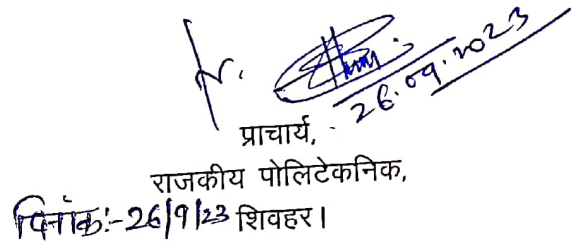 26.09.2023
प्राचार्य,
राजकीय पोलिटेकनिक,
दिनांक:-26/9/23 शिवहर।